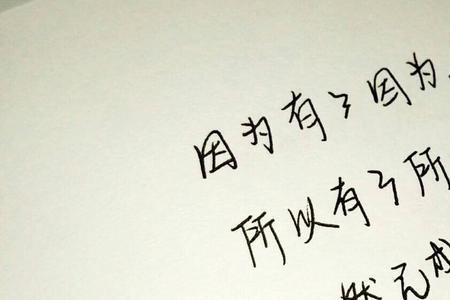 因为有了因为
所以有了所
既